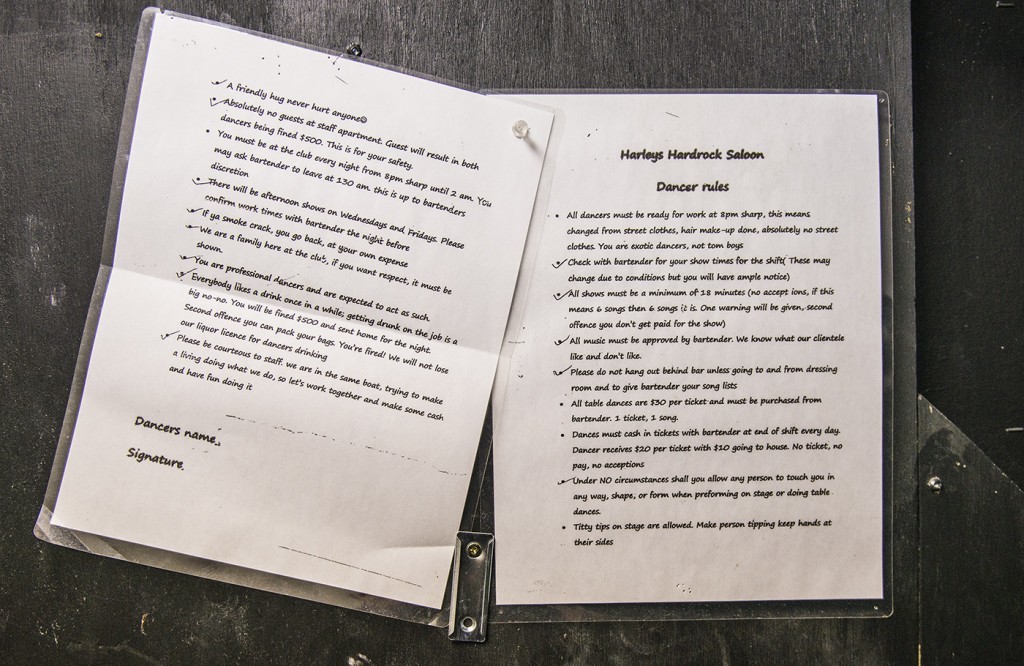 A friendly hug never hurt anyone☺
Absolutely no guests at staff apartment. Guest will result in both
dancers being fined $500. This is for your safety.
You must be at the club every night from 8pm sharp until 2 am. You
may ask bartender to leave at 130 am. this is up to bartenders
discretion
There will be afternoon shows on Wednesdays and Fridays. Please
confirm work times with bartender the night before
If ya smoke crack, you go back, at your own expense
We are a family here at the club, if you want respect, it must be
shown.
You are professional dancers and are expected to act as such.
Everybody likes a drink once in a while; getting drunk on the job is a
big no-no. You will be fined $500 and sent home for the night.
Second offence you can pack your bags. You're fired! We will not lose
our liquor licence for dancers drinking
Please be courteous to staff. we are in the same boat, trying to make
a living doing what we do, so let's work together and make some cash
and have fun doing it
Dancers name.
Signature.
Harleys Hardrock Saloon
Dancer rules
All dancers must be ready for work at 8pm sharp, this means
changed from street clothes, hair make-up done, absolutely no street
clothes. You are exotic dancers, not tom boys
Check with bartender for your show times for the shift( These may
change due to conditions but you will have ample notice)
All shows must be a minimum of 18 minutes (no accept ions, if this
means 6 songs then 6 songs it is. One warning will be given, second
offence you don't get paid for the show)
All music must be approved by bartender. We know what our clientele
like and don't like.
Please do not hang out behind bar unless going to and from dressing
room and to give bartender your song lists
All table dances are $30 per ticket and must be purchased from
bartender. 1 ticket, 1 song.
Dances must cash in tickets with bartender at end of shift every day.
Dancer receives $20 per ticket with $10 going to house. No ticket, no
pay, no acceptions
Under NO circumstances shall you allow any person to touch you in
any way, shape, or form when preforming on stage or doing table
dances.
Titty tips on stage are allowed. Make person tipping keep hands at
their sides